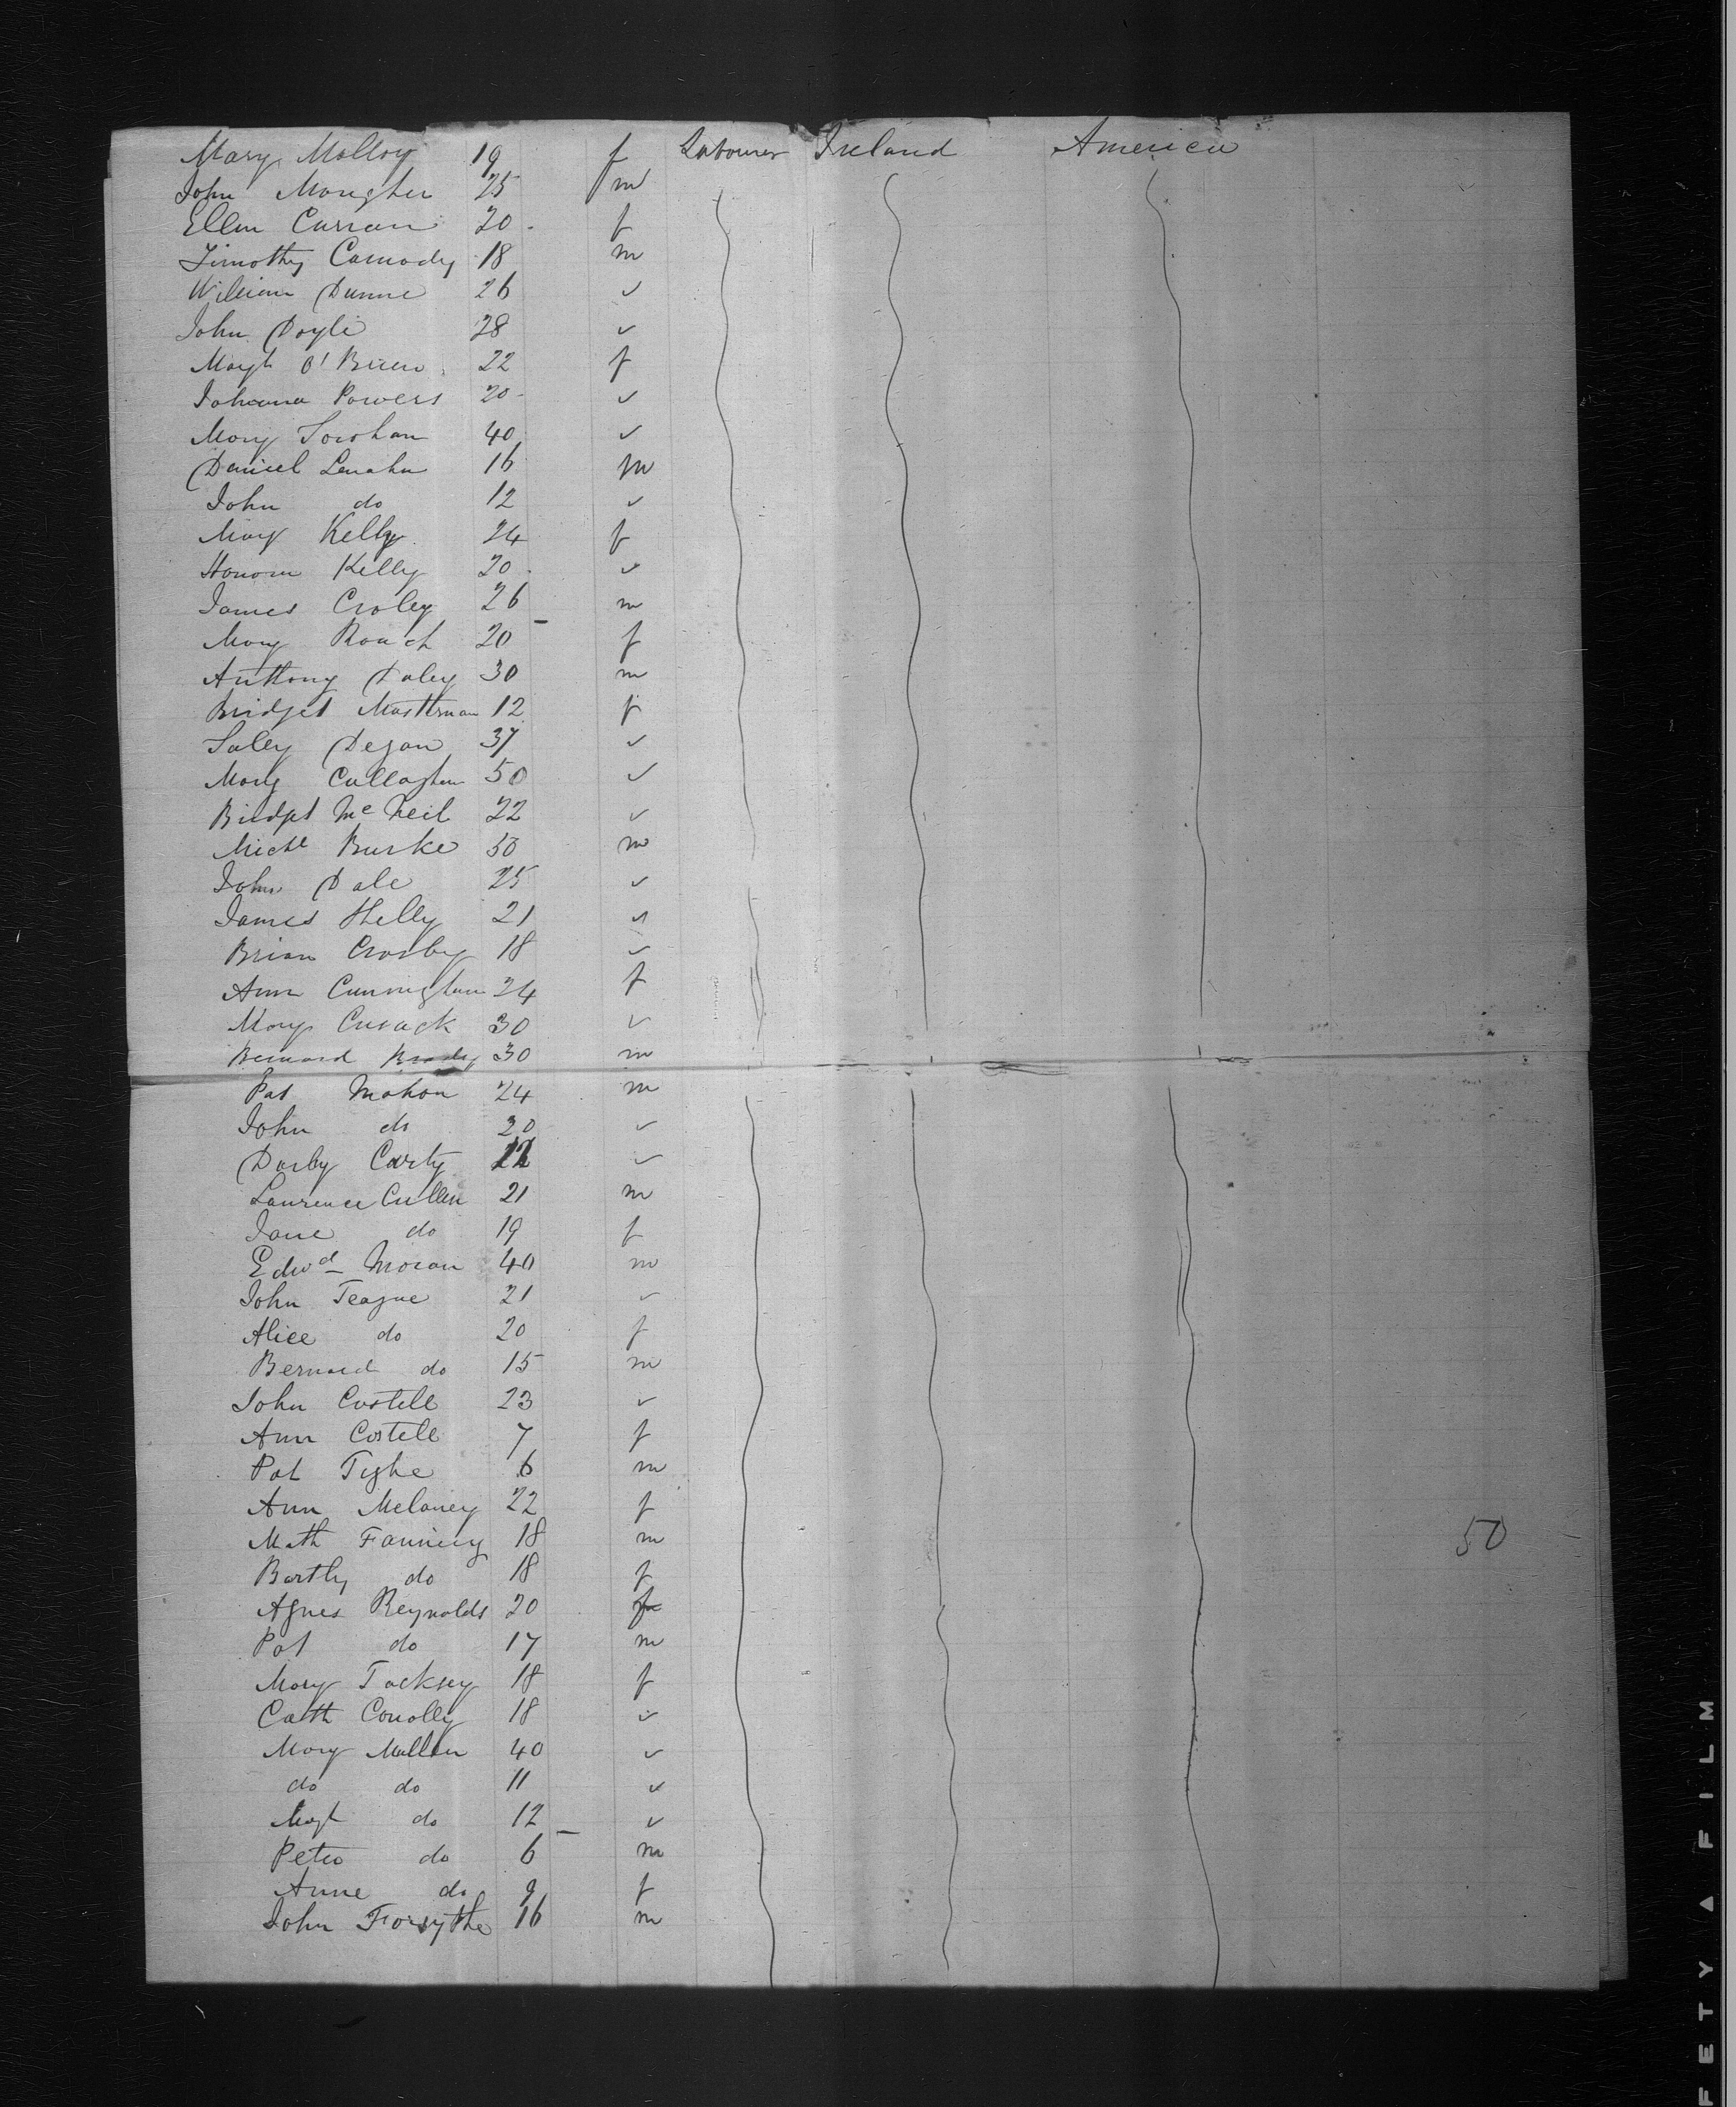 Mary Molloy 19 f Labourer Ireland America
John Maugher 25 m
Ellen Curran 20 f
Timothy Carmody 18 m
William Dunne 26 ✓
John Doyle 28 ✓
Margt O'Brien 22 f
Johanna Powers 20 ✓
Mary 40 ✓
Daniel Lenahn 16 m
John do 12 ✓
Mary Kelly 24 f
Honora Kelly 20 ✓
James Croley 26 m
Mary Roach 20 f
Anthony Daley 30 m
Bridget Masterman 12 f
Saley Degan 37 ✓
Mary Callaghan 50 ✓
Bridget McNeil 22 ✓
Michl Burke 50 m
John Dale 25 ✓
James Helly 21 ✓
Brian Crosby 18 ✓
Ann Cunningham 24 f
Mary Cusack 30 ✓
Bernard Brady 30 m
Pat Mahon 24 m
John do 20 ✓
Darby Carty 22 ✓
Laurence Cullen 21 m
Jane do 19 f
Edwd Moran 40 m
John Teague 21 ✓
Alice do 20 f
Bernard do 15 m
John Costell 23 ✓
Ann Costele 7 f
Pat Tighe 6 m
Ann Melaney 22 f
Math Fanning 18 m 50
Bartly do 18 f
Agnes Reynolds 20 f
Pat do 17 m
Mary Tacksey 18 f
Cath Conolly 18 ✓
Mary Mullen 40 ✓
do do 11 ✓
Magt do 12 ✓
Peter do 6 m
Anne do 9 f
John Forsythe 16 m
FETY ▲ FILM